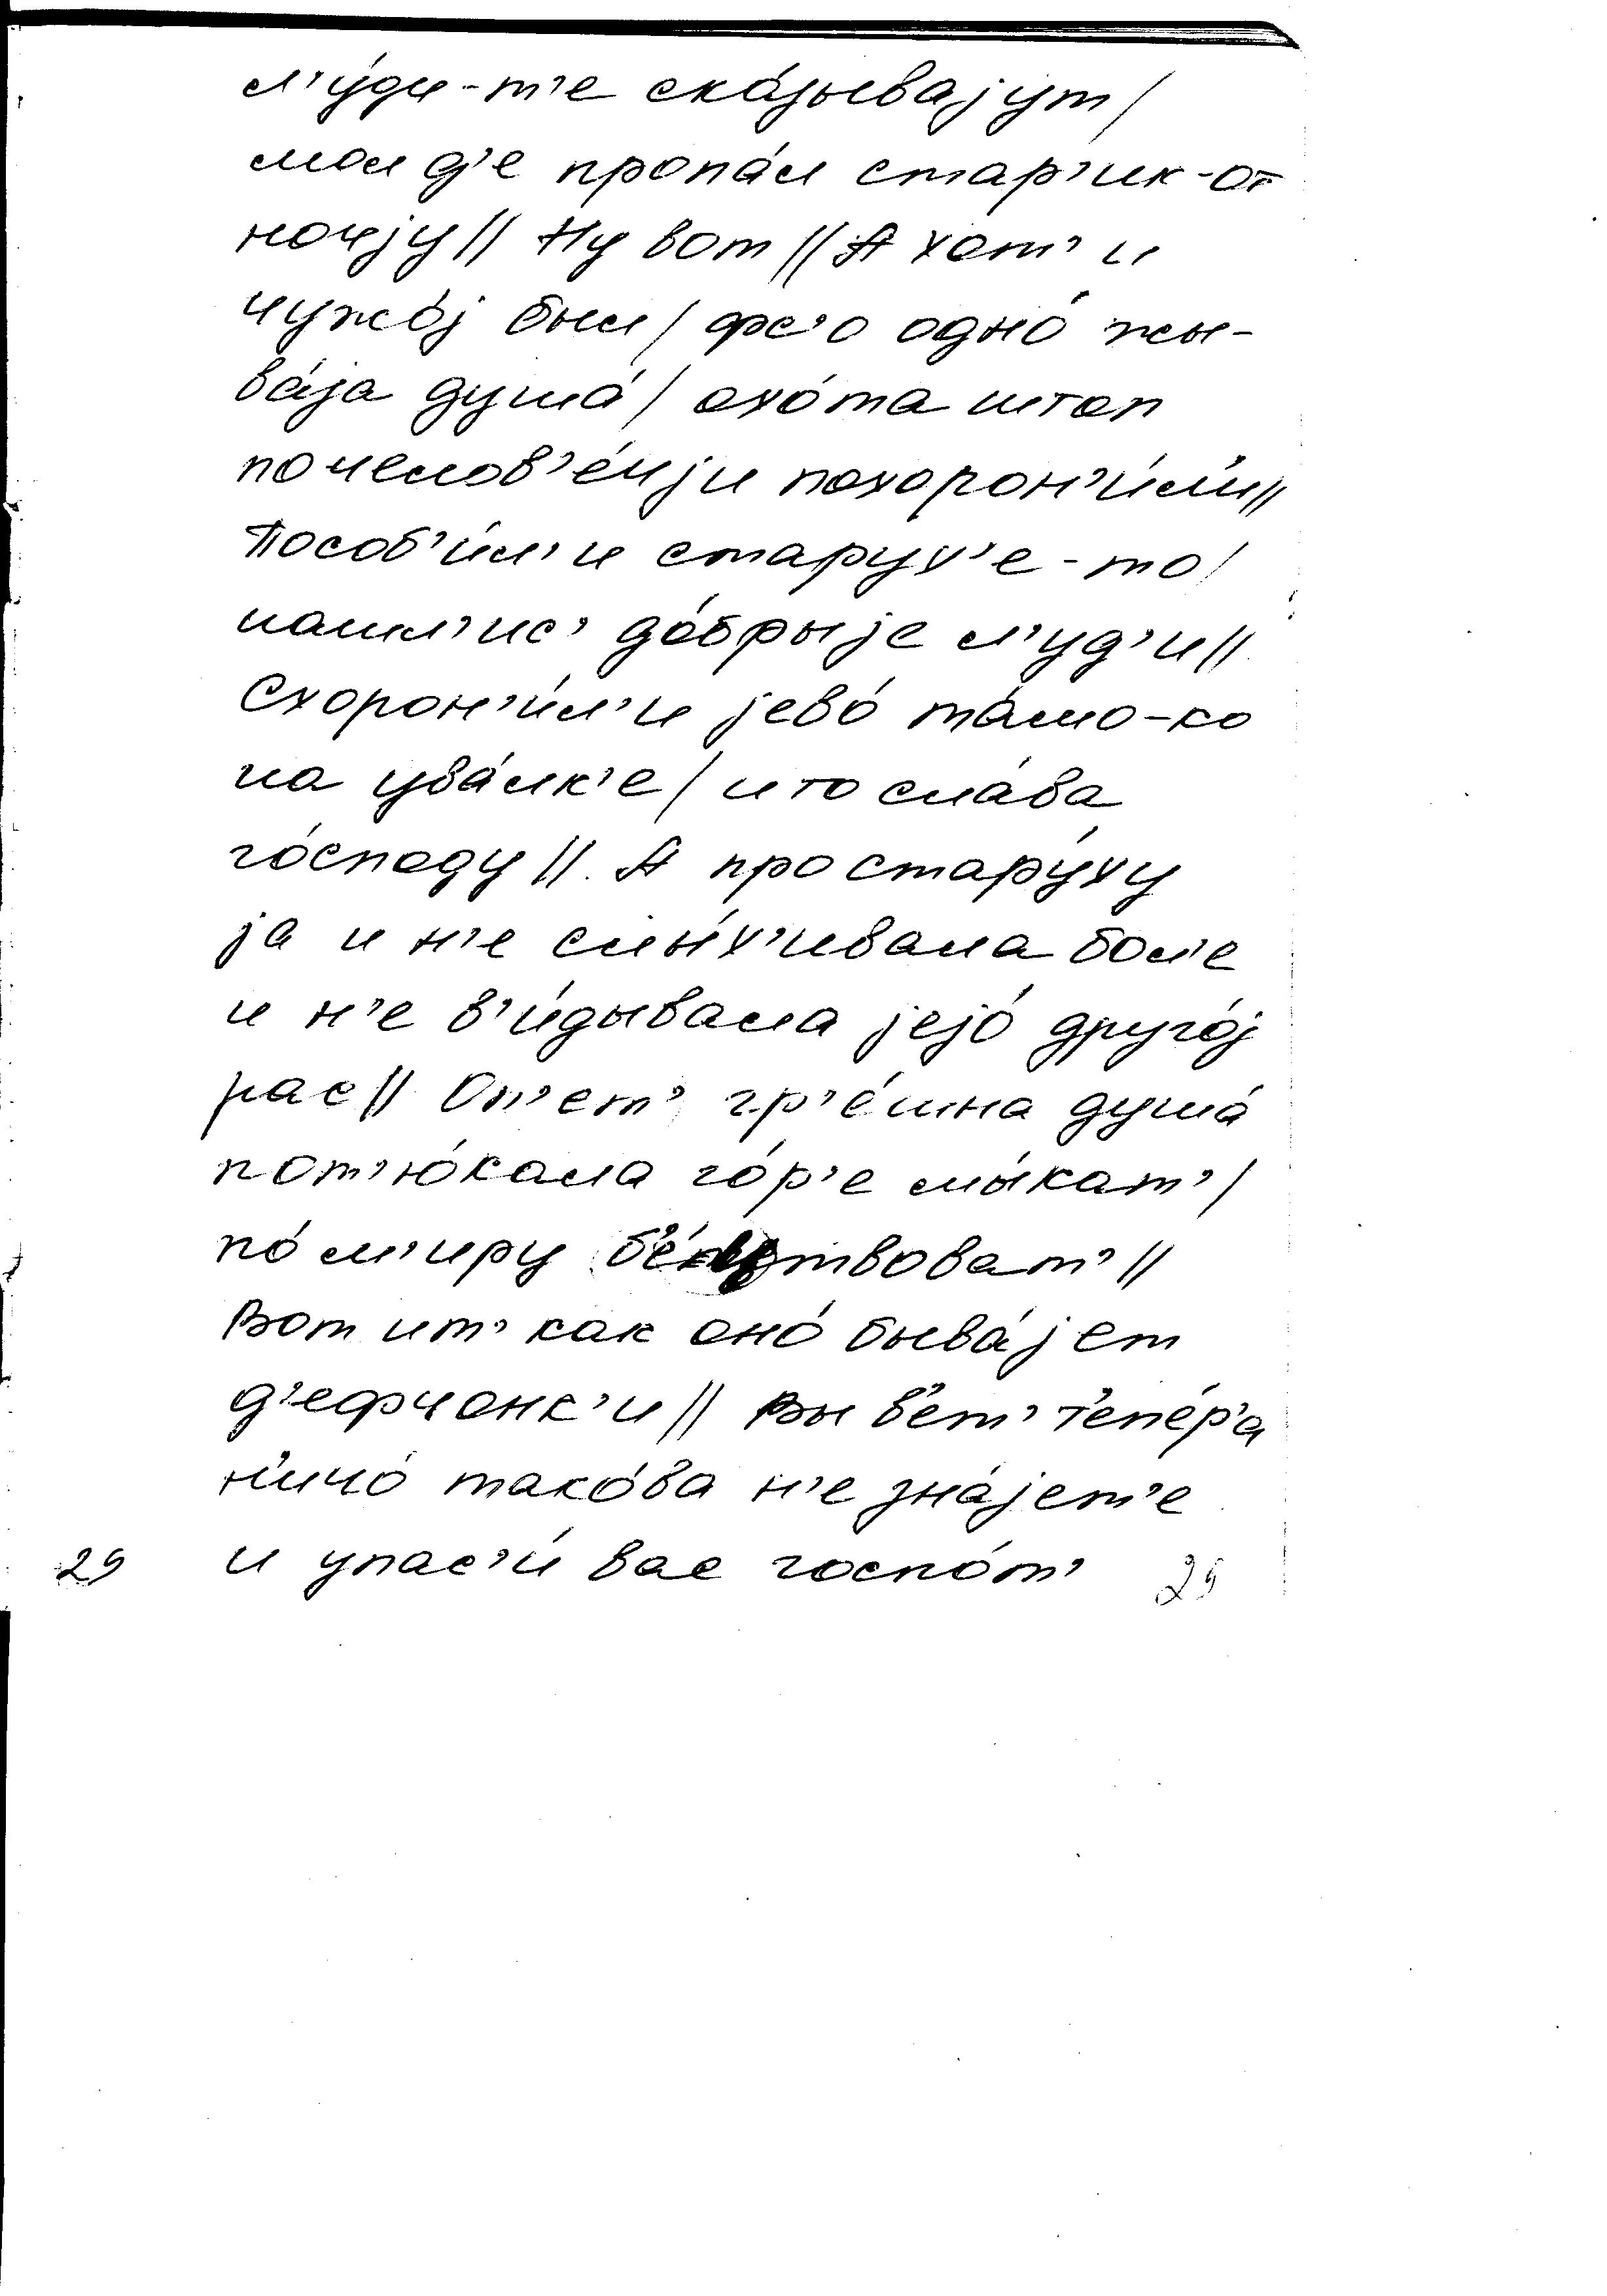 л'у́ди-т'е ска́зывајут/
мол д'е пропа́л стар'ик-от
ночју// Ну вот// А хот' и
чужо́ј был/ фс'о одно́ жы-
ва́ја душа́/ охо́та штоп
почелов'е́чји похорон'и́л'и//
Пособ'и́л'и старух'е-то/
нашл'ис' до́брыје л'уд'и//
Схорон'и́л'и јево́ та́мо-ко
на ува́лк'е/ и то сла́ва
го́споду// А про стару́ху
ја и н'е слы́х'ивала бол'е
и н'е в'и́дывала јејо́ друго́ј
рас// Оп'ет' гр'е́шна душа́
пот'ю́кала го́р'е мы́кат'/
по́ м'иру твоват'//
Вот ит' как оно́ быва́јет
д'ефчонк'и// Вы в'ет' т'епе́р'а
н'ичо́ тако́ва н'е зна́јет'е
29 и упас'и́ вас госпо́т' 29